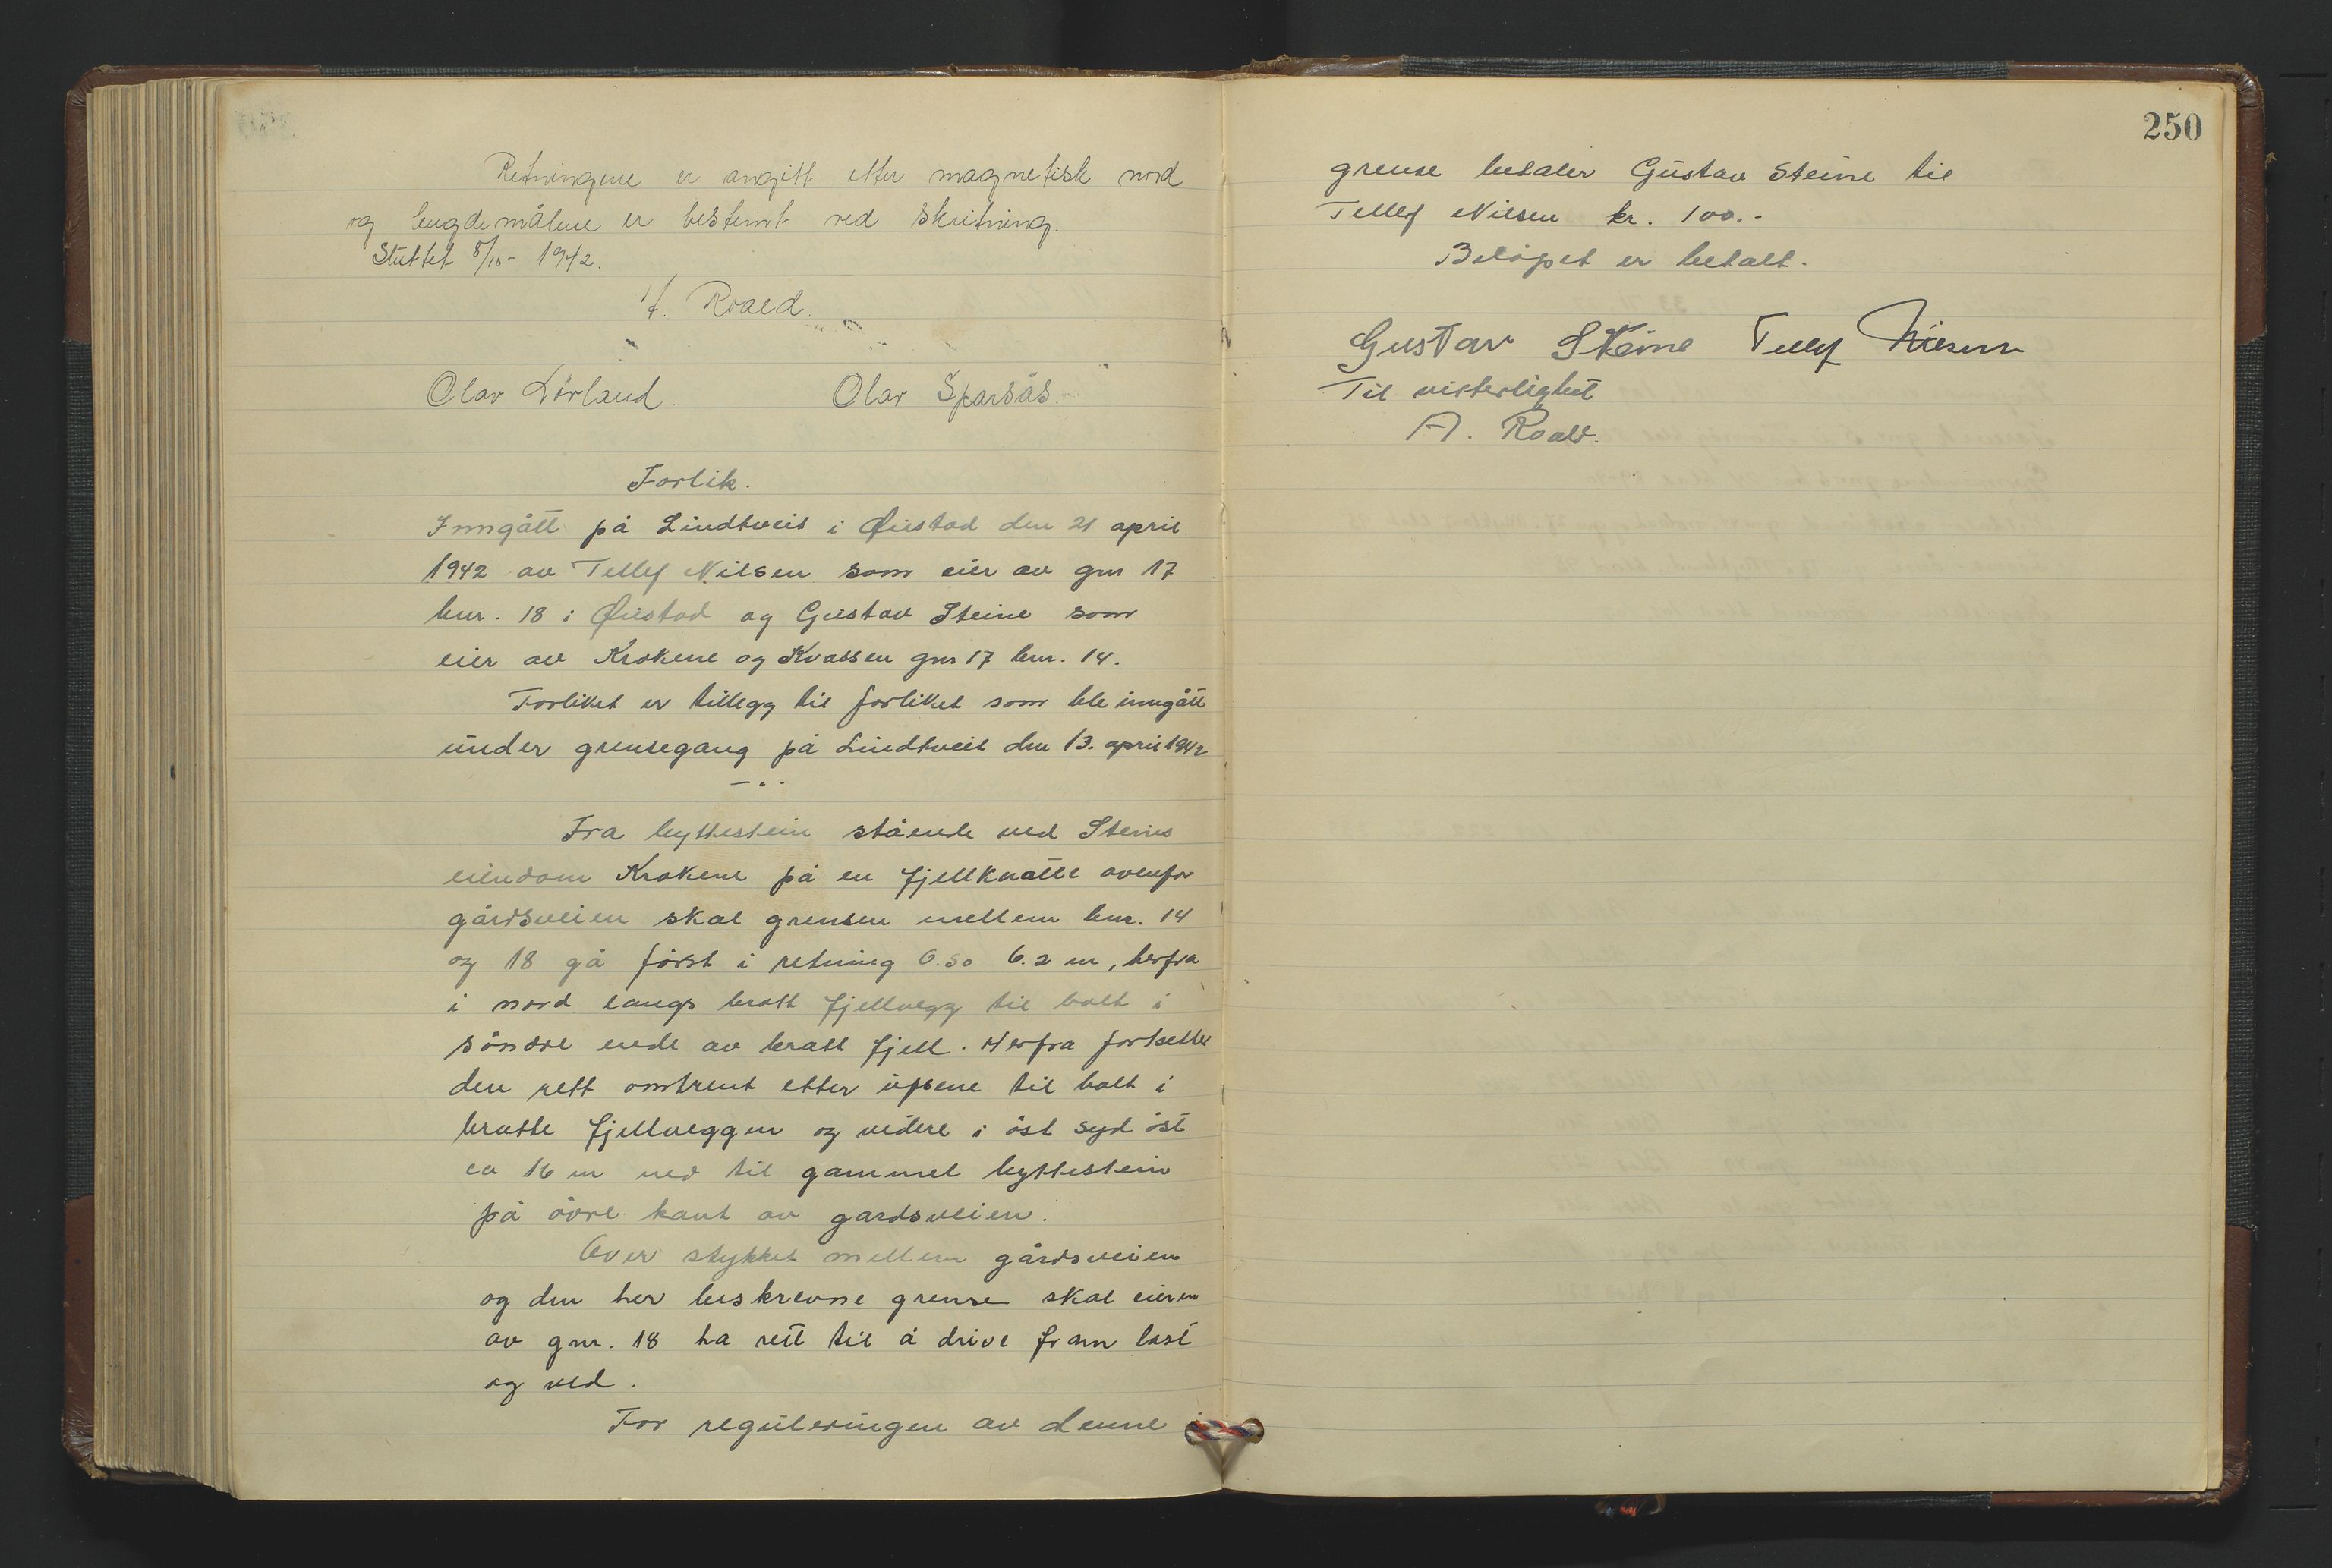 Retningene er angitt etter magnetisk nord
og lengdemålene er bestemt ved skritning.
Sluttet 8/10- 1942.
A. Roald.
Olav Dörland. Olav Sparsås.
Forlik.
Inngått på Lindtveit i Øiestad den 21 april
1942 av Tellef Nilsen som eier av gnr 17
bnr. 18 i Øiestad og Gustav Steine som
eier av Krokene og Kvassen gnr 17 bnr. 14.
Forliket er tillegg til forliket som ble inngått
under grensegang på Lindtveit den 13. april 1942
Fra byttestein stående ved Steines
eiendom Krokene på en fjellknatte ovenfor
gårdsveien skal grensen mellem bnr. 14
og 18 gå först i retning O.SO 6.2 m, herfra
i nord langs bratt fjellvegg til bolt i
söndre ende av bratt fjell. Herfra fortsetter
den rett omtrent etter ufsene til bolt i
bratte fjellveggen og videre i öst syd öst
ca 16 m ned til gammel byttestein
på övre kant av gardsveien.
Over stykket mellem gårdsveien
og den her beskrevne grense skal eieren
av gnr. 18 ha rett til å drive fram last
og ved.
For reguleringen av denne
250
grense betaler Gustav Steine til
Tellef Nilsen kr. 100.-
Belöpet er betalt.
Gustav Steine Tellef Nilsen
Til vitterlighet
A. Roald.